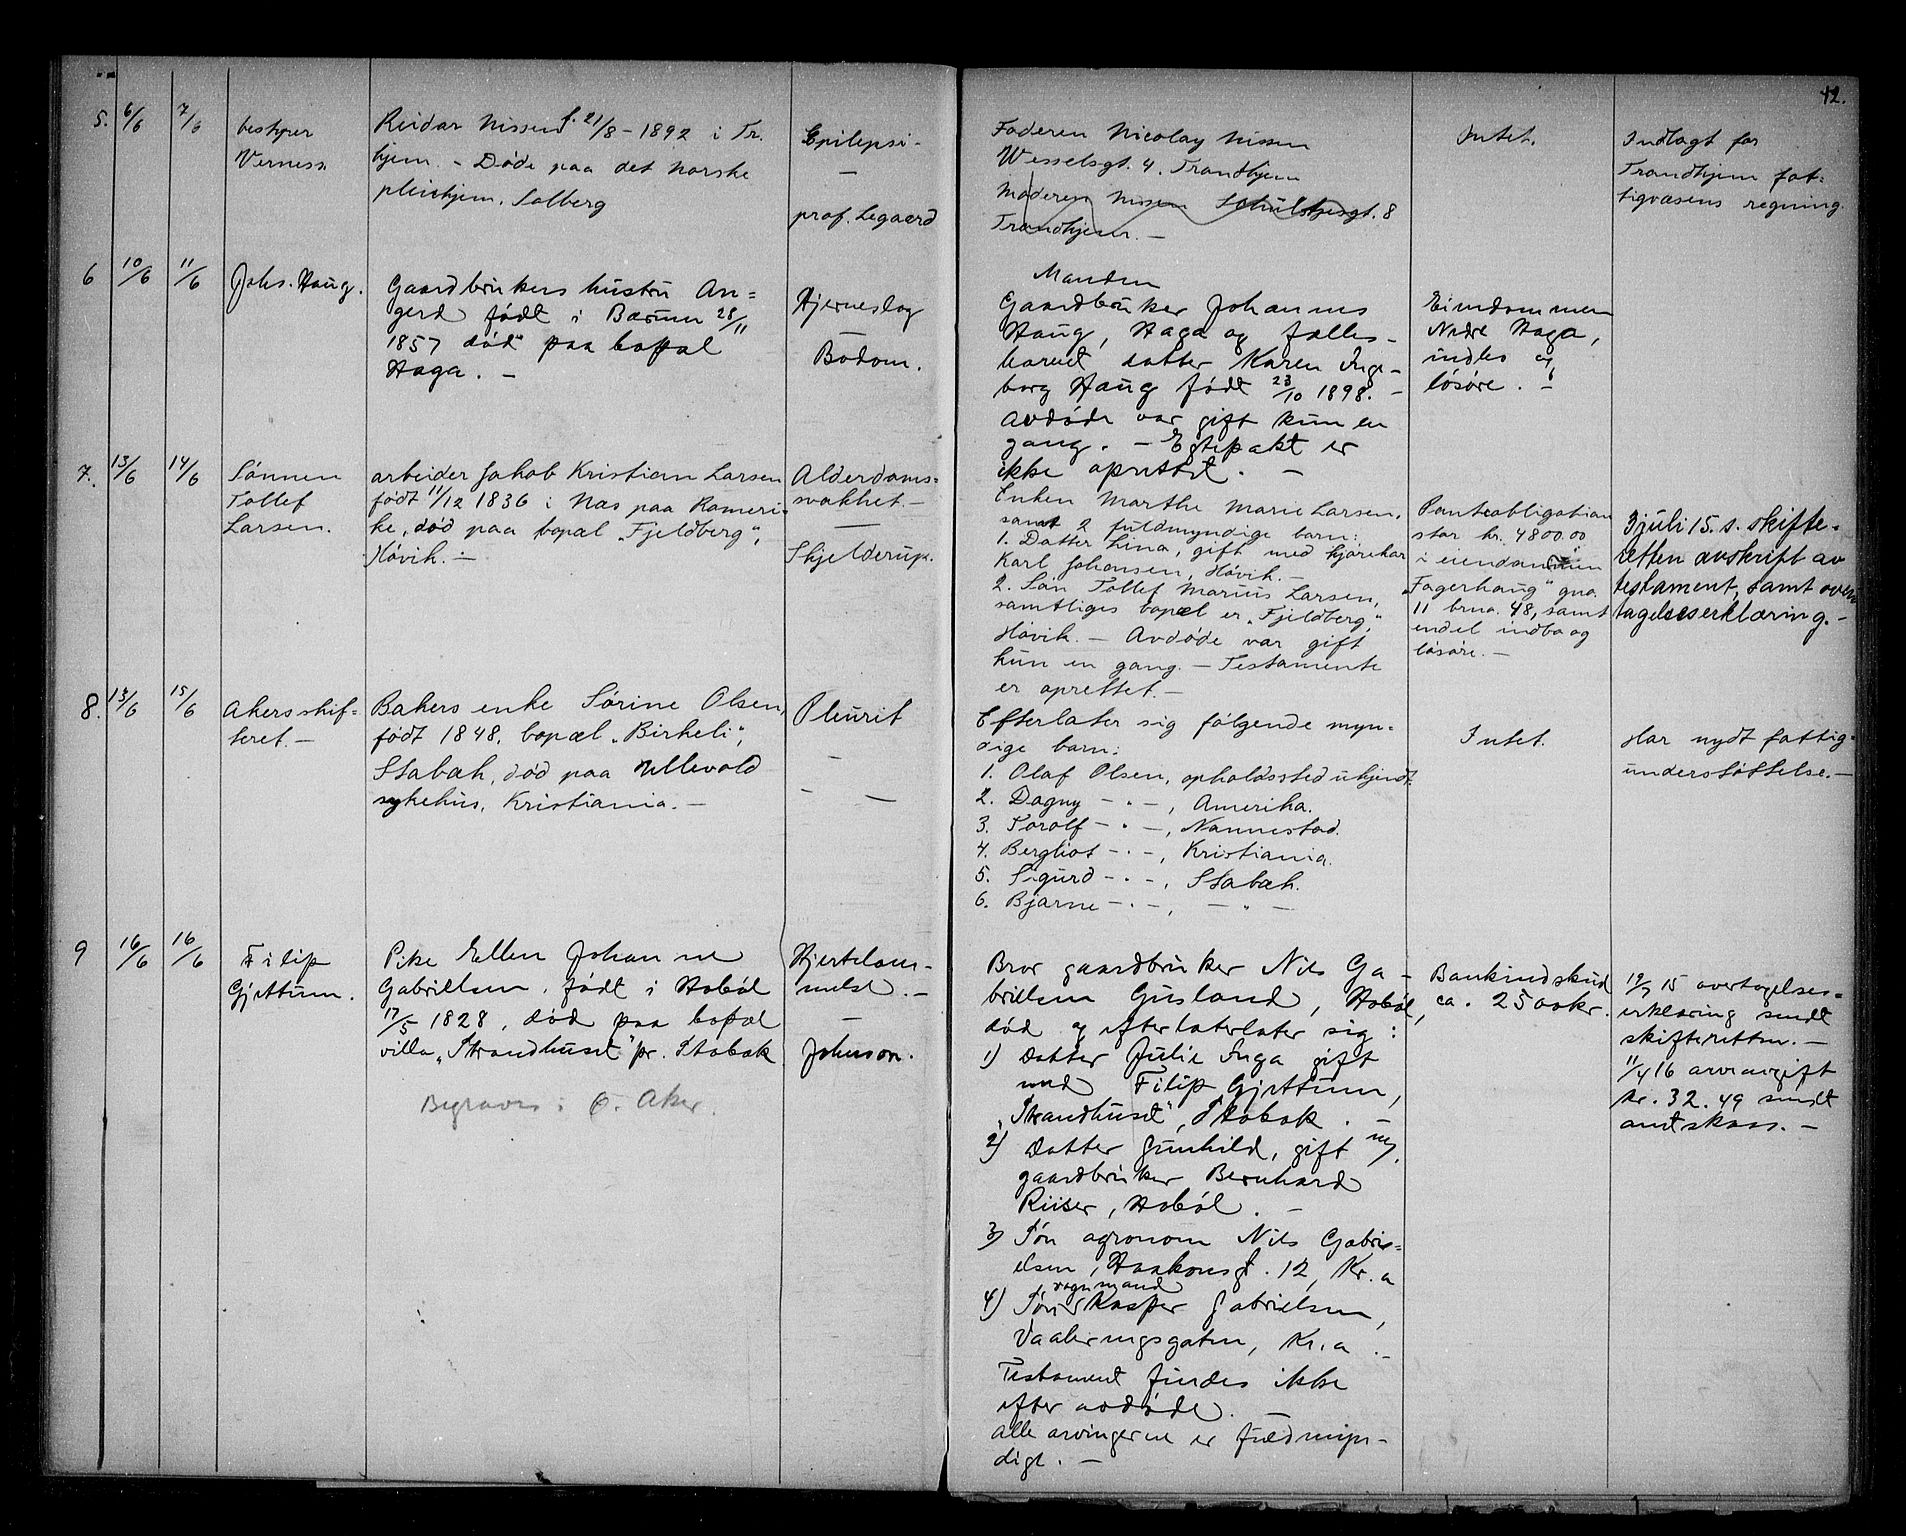 42.
5. 6/6 7/6
bestyrer
Verness.
Reidar Nissen f. 21/8 - 1892 i Tr.
hjem. - Døde paa det norske
pleiehjem, Solberg
Epilepsi -
—
prof. Legaard
Faderen Nicolay Nissen
Wesselsgt. 4. Trondhjem
Moderen Nissen Schulthesgt. 8
Trondhjem. —
Intet.
Indlagt for
Trondhjem fat-
tigvæsens regning.
6 10/6 11/6
Johs. Haug.
Gaardbrukers hustru An=
gerd født i Bærum 28/11
1857 død paa bopæl
Haga. —
Hjerneslag
—
Bødom.
Manden
Gaardbruker Johannes
Haug, Haga og fælles-
barnet datter Karen Inge-
borg Haug født 23/10 1898. -
Avdøde var gift kun en
gang. - Egtepakt er
ikke oprettet. —
Eiendommen
Nedre Haga,
indbo og
løsøre. —
7. 13/6 14/6
Sønnen
Tollef
Larsen.
arbeider Jakob Kristian Larsen
født 11/12 1836 i Nes paa Romeri-
ke, død paa bopæl „Fjeldberg",
Høvik. —
Alderdoms=
svakhet. —
—
Skjelderup.
Enken Marthe Marie Larsen,
samt 2 fuldmyndige barn:
1. Datter Lina, gift med kjørekar
Karl Johansen, Høvik. —
2. Søn Tollef Marius Larsen,
samtliges bopæl er „Fjeldberg",
Høvik. — Avdøde var gift
kun en gang. — Testamente
er oprettet. —
Panteobligation
stor kr. 4800.00
i eiendommen
„Fagerhaug" gno.
11 brno. 48, samt
endel indbo og
løsøre. —
3 juli 15. s. skifte-
retten avskrift av
testament, samt over
tagelseserklæring. -
8. 13/6 15/6
Akersskif=
teret. —
Bakers enke Sørine Olsen,
født 1848, bopæl „Birkeli",
Stabæk, død paa Ullevold
sykehus, Kristiania. —
Pleurit
—
- —
Efterlater sig følgende myn-
dige barn:
1. Olaf Olsen, opholdssted ukjendt.
2. Dagny — " —, Amerika.
3. Torolf — " —, Nannestad.
4. Bergliot — " —, Kristiania.
5. Sigurd — " —, Stabæk.
6. Bjarne — " —, — " —
Intet.
Har nydt fattig=
understøttelse. —
9 16/6 16/6
Filip
Gjettum.
Pike Ellen Johanne
Gabrielsen, født i Hobøl
17/5 1828, død paa bopæl
villa „Strandhuset" pr. Stabæk
Begraves i Ø. Aker.
Hjertelam-
melse. —
—
Johnson.
Bror gaardbruker Nils Ga-
brielsen Gusland, Hobøl,
død og efterlaterlater sig:
1) Datter Julie Inga gift
med Filip Gjettum,
„Strandhuset", Stabæk. —
2) Datter Gunhild, gift m/
gaardbruker Bernhard
Riiser, Hobøl. —
3) Søn agronom Nils Gabri=
elsen, Haakonsgt. 12, Kr.a
4) Søn vognmand Kasper Gabrielsen,
Vaalerengsgaten, Kr.a. —
Testament findes ikke
efter avdøde. —
Alle arvingerne er fuldmyn-
dige. —
Bankindskud
ca. 2500 kr.
19/7 15 overtagelses=
erklæring sendt
skifteretten. —
11/4 16 arveavgift
kr. 32.49 sendt
amtskass. —